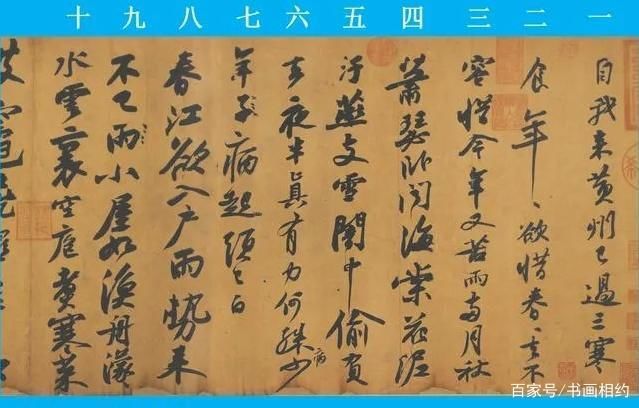 一 二 三 四 五 六 七 八 九 十
自我来黄州已過三寒
食年〻欲惜春〻去不
容惜今年又苦雨兩月秋
蕭瑟卧聞海棠花泥
汙燕支雪闇中偷負
去夜半真有力何殊少病
年子病起頭已白
春江欲入户雨勢来
不已雨小屋如漁舟濛〻
水雲裏空庖煮寒菜
百家号/书画相约